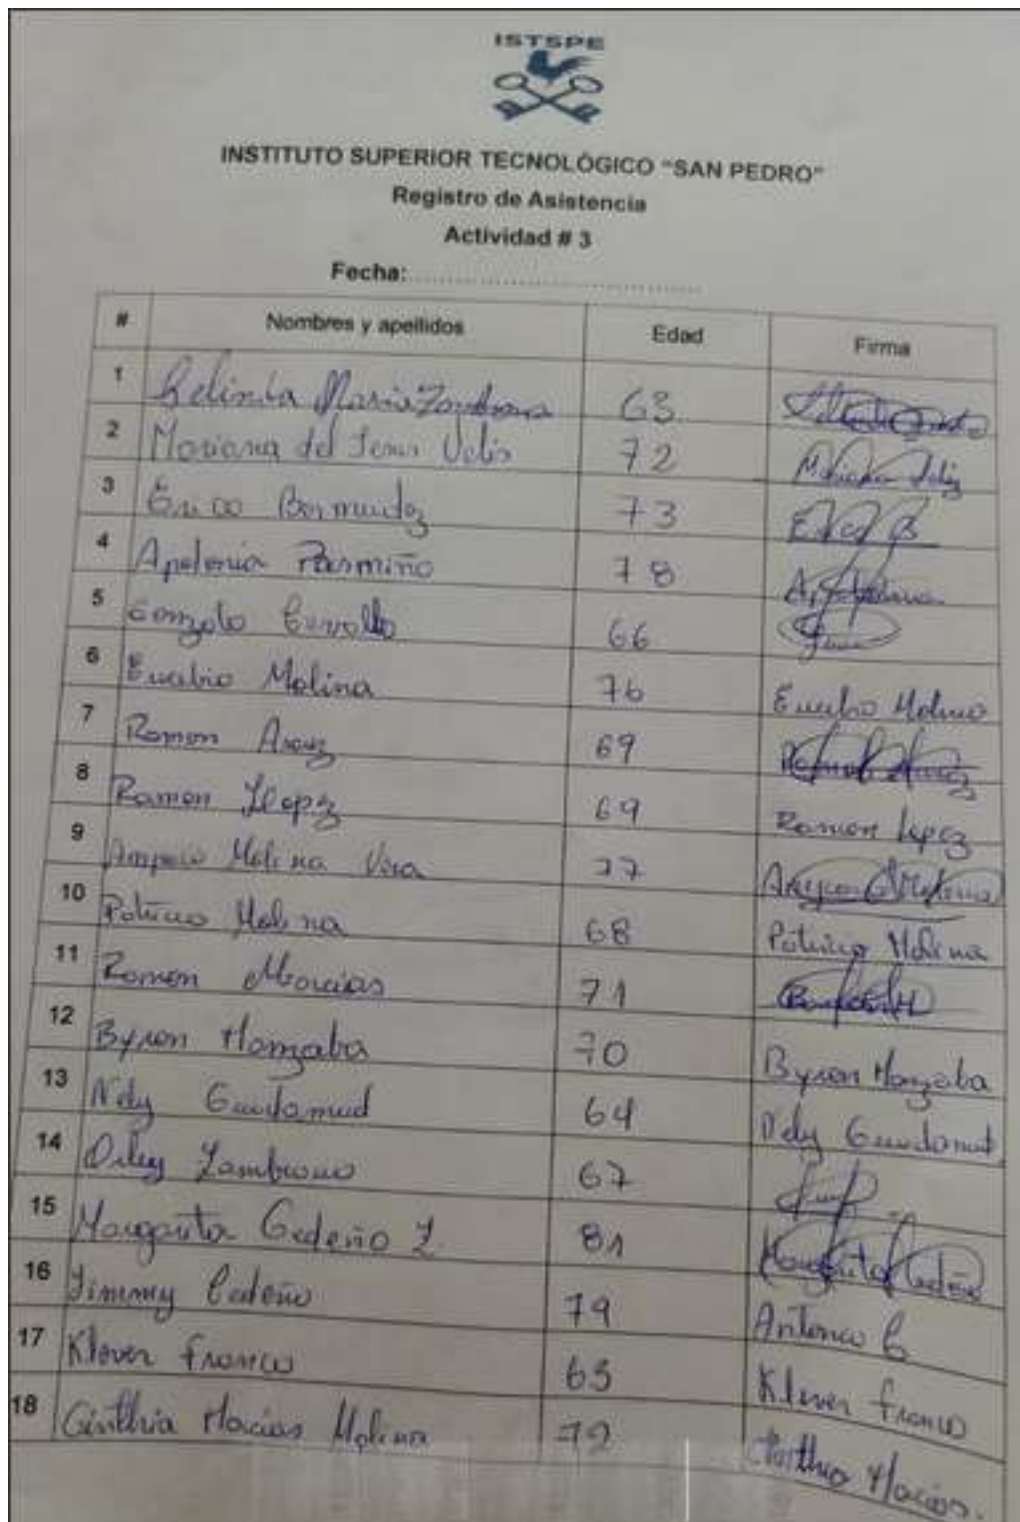 ISTSPE
INSTITUTO SUPERIOR TECNOLÓGICO "SAN PEDRO"
Registro de Asistencia
Actividad # 3
Fecha:
# Nombres y apellidos Edad Firma
1 Maria 63
2 Mariana del Jesus Velis 72 Mariana Veliz
3 Bermudez 73
4 Apolonia Parmiño 78
5 Gonzalo 66
6 Eusebio Molina 76 Eusebio Molina
7 Ramon Arauz 69
8 Ramon Llopez 69 Ramon Lopez
9 Amparo Molina Vera 77
10 Patricio Molina 68 Patricio Molina
11 Ramon Macias 71
12 Byron Manzaba 70 Byron Manzaba
13 Nely 64 Nely
14 Zambrano 67
15 Margarita Cedeño Z 81 Margarita Cedeño
16 Jimmy Cedeño 79 Antonio C
17 Klever Franco 63 Klever Franco
18 Cinthia Macias Molina 72 Macias.